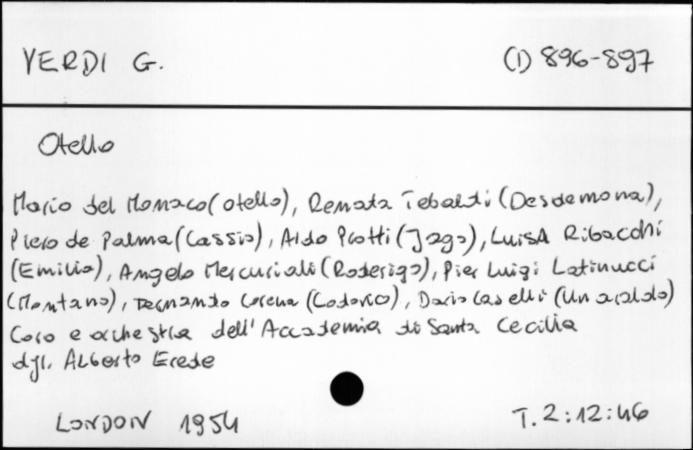 VERDI G. (I) 896-897
Otello
Mario del Monaco (Otello), Renata Tebaldi (Desdemona),
Piero de Palma (Cassio), Aldo Protti (Jago), Luisa Ribacchi
(Emilia), Angelo Mercuriali (Roderigo), Pier Luigi Latinucci
(Montano), Fernando Corena (Lodovico), Dario Caselli (Un araldo)
Coro e orchestra dell'Accademia di Santa Cecilia
dgl. Alberto Erede
LONDON 1954 T. 2:12:46